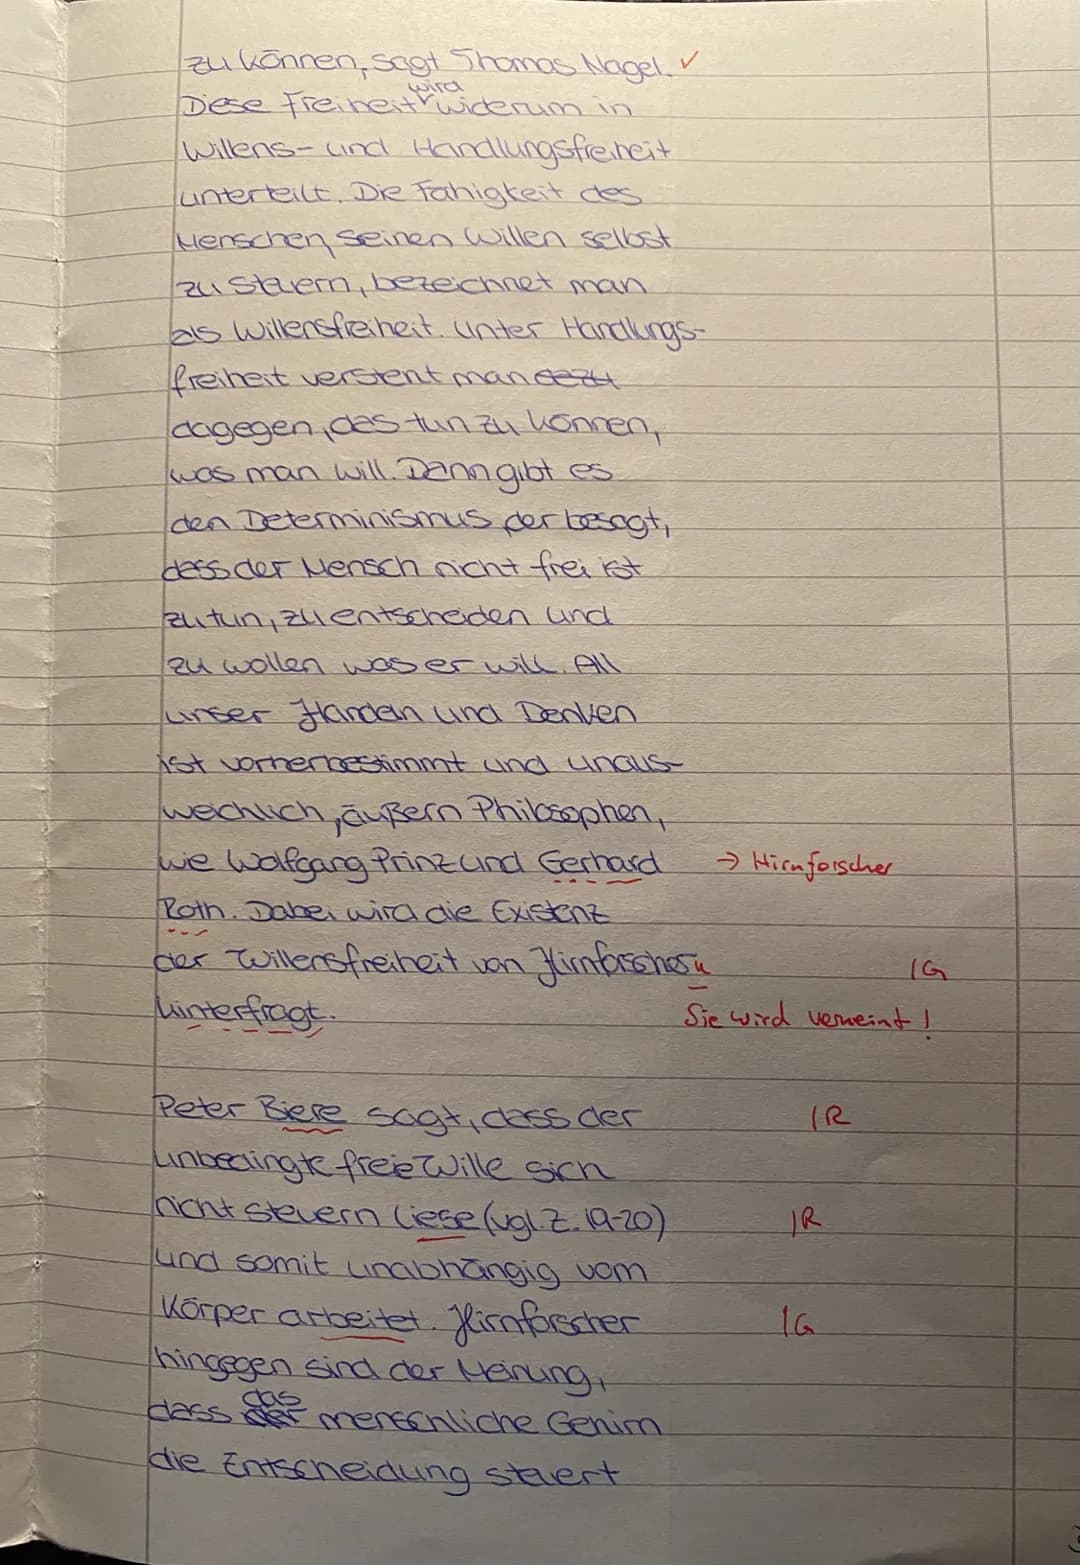 zu können, sagt Thomas Nagel. ✓
wird
Diese Freiheit widerum in
Willens- und Handlungsfreiheit
unterteilt. Die Fähigkeit des
Menschen, seinen Willen selbst
zu steuern, bezeichnet man
als Willensfreiheit. Unter Handlungs-
freiheit versteht man dazu
dagegen, das tun zu können,
was man will. Dann gibt es
den Determinismus, der besagt,
dass der Mensch nicht frei ist
zu tun, zu entscheiden und
zu wollen was er will. All
unser Handeln und Denken
ist vorherbestimmt und unaus-
weichlich, äußern Philosophen,
wie Wolfgang Prinz und Gerhard → Hirnforscher
Roth. Dabei wird die Existenz
der Willensfreiheit von Hirnforschern |G
hinterfragt. Sie wird verneint!
Peter Biere sagt, dass der |R
unbedingte freie Wille sich
nicht steuern liese (vgl. Z. 19-20) |R
und somit unabhängig vom
Körper arbeitet. Hirnforscher |G
hingegen sind der Meinung,
das
dass der menschliche Gehirn
die Entscheidung steuert